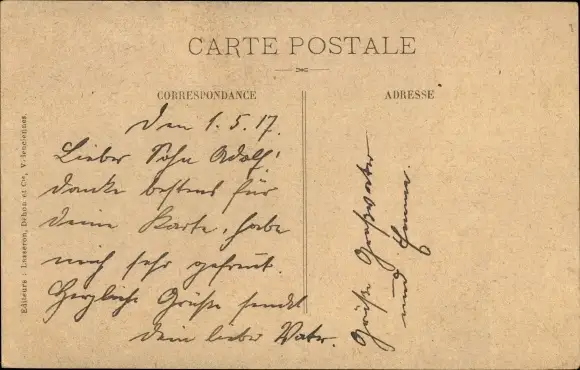 CARTE POSTALE
CORRESPONDANCE
ADRESSE
Den 1.5.17.
Lieber Sohn Adolf!
danke bestens für
deine Karte, habe
mich sehr gefreut.
Herzliche Grüße sendet
dein lieber Vater.
Grüße Großvater
und Emma.
Editeurs : Lasseron, Dehon et Cie, Valenciennes.